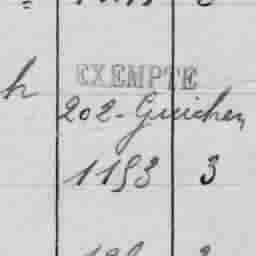 h EXEMPTE
202-Guichen
1153 3